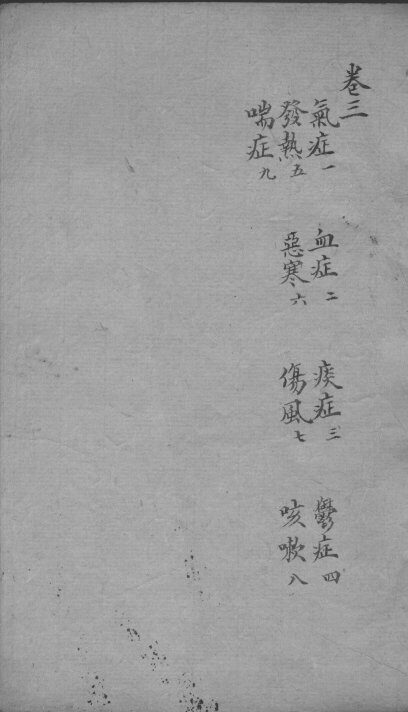 卷三
氣症一 血症二 痰症三 鬱症四
發熱五 惡寒六 傷風七 咳嗽八
喘症九